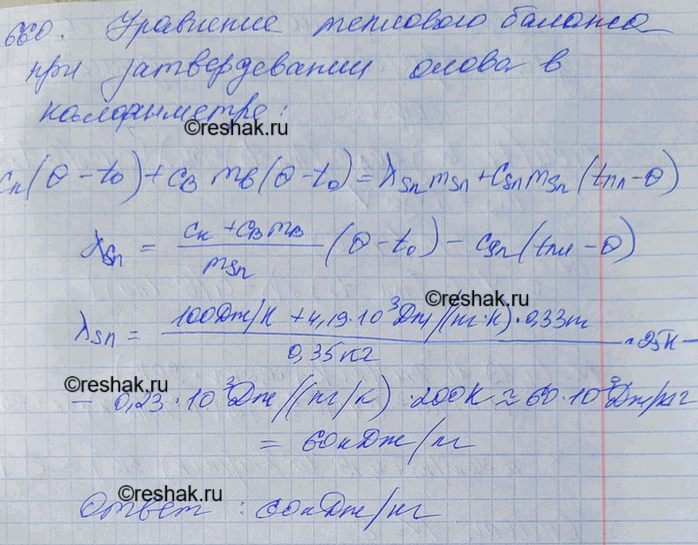 660. Уравнение теплового баланса
при затвердевании олова в
калориметре:
©reshak.ru
cк(θ - t₀) + cв mв(θ - t₀) = λSn mSn + cSn mSn (tпл - θ)
λSn = (cк + cв mв)/mSn (θ - t₀) - cSn (tпл - θ)
©reshak.ru
λSn = (100Дж/К + 4,19·10³Дж/(кг·К)·0,33кг)/0,35кг · 25К -
- 0,23·10³Дж/(кг/К) · 200К ≈ 60·10³Дж/кг
= 60кДж/кг
©reshak.ru
Ответ: 60кДж/кг
©reshak.ru